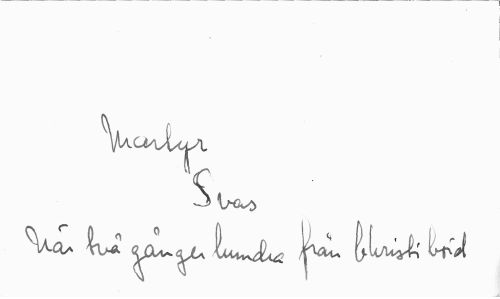 Martyr
Svas
När två gånger hundra från Christi böid